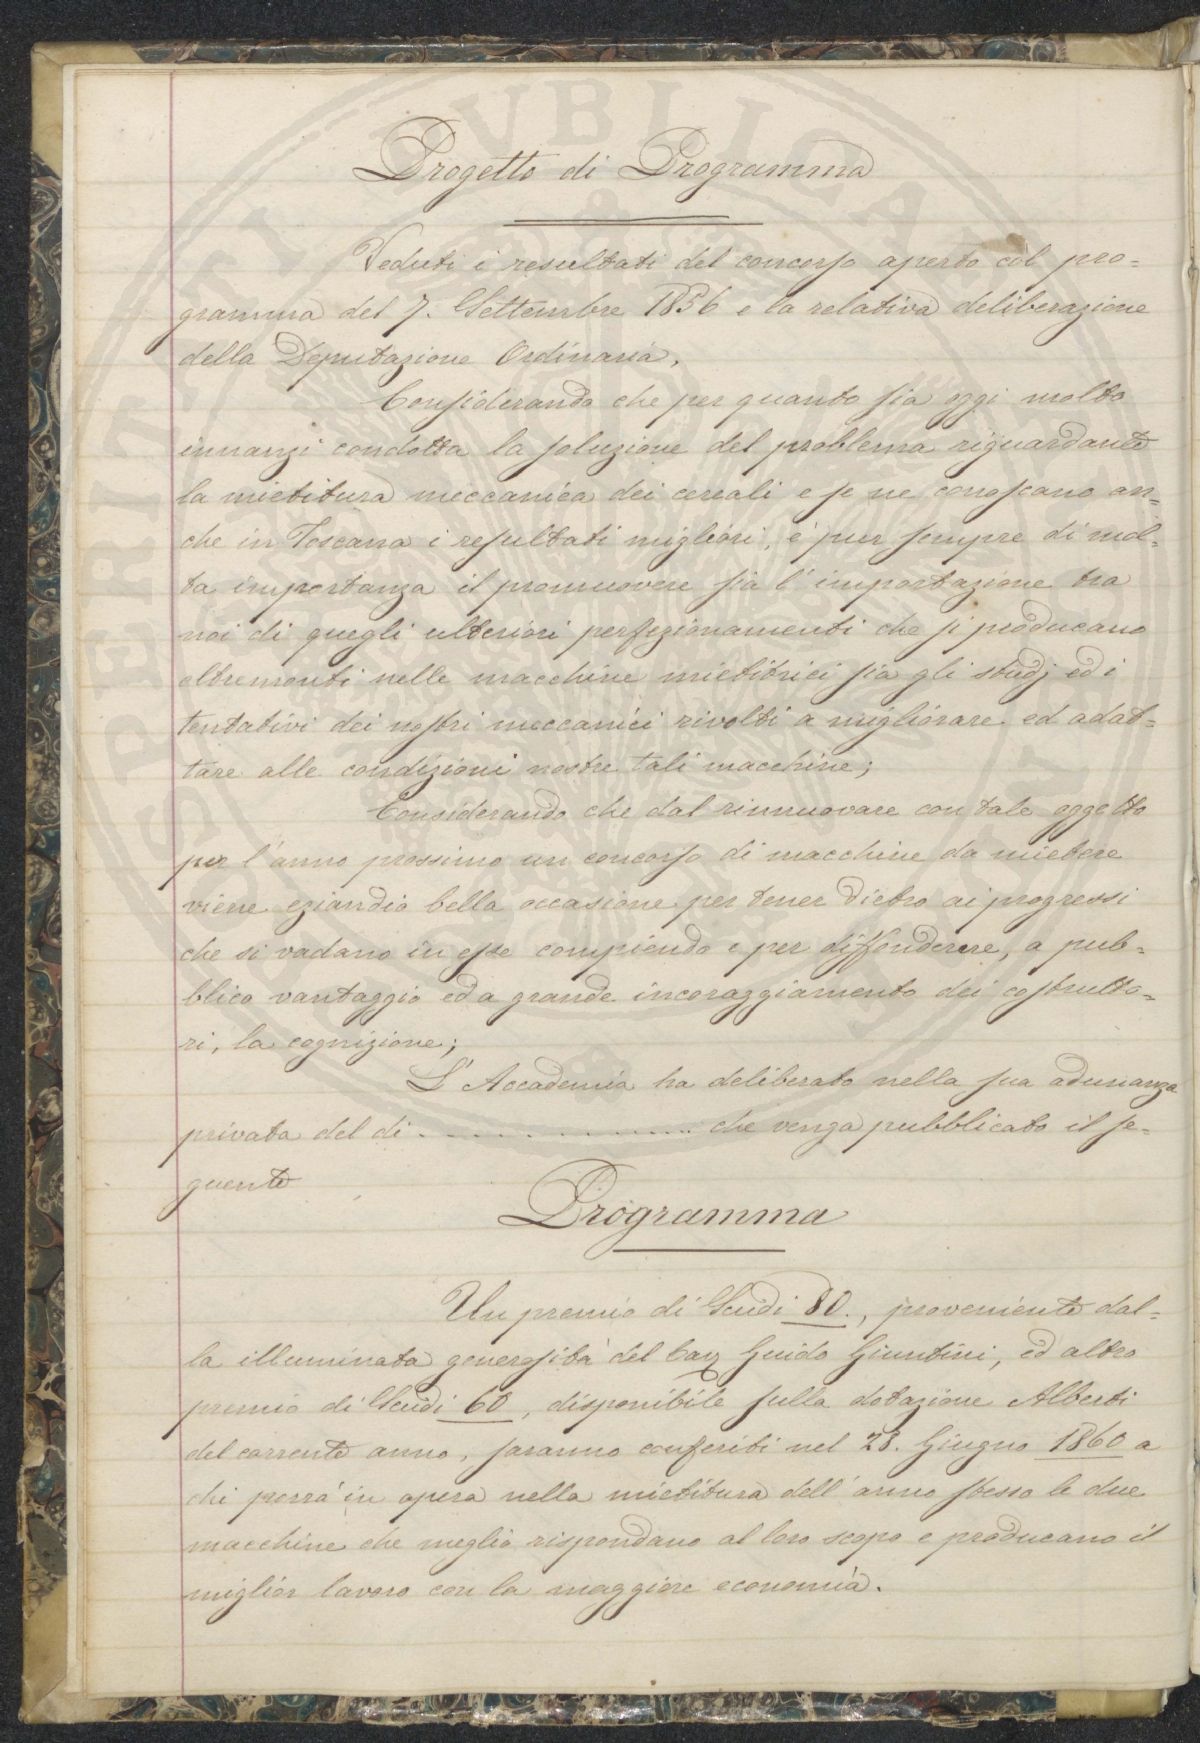 Progetto di Programma
Veduti i resultati del concorso aperto col pro=
gramma del 7. Settembre 1856 e la relativa deliberazione
della Deputazione Ordinaria,
Considerando che per quanto sia oggi molto
innanzi condotta la soluzione del problema riguardante
la mietitura meccanica dei cereali e se ne conoscano an=
che in Toscana i resultati migliori, è pur sempre di mol=
ta importanza il promuovere sia l'importazione tra
noi di quegli ulteriori perfezionamenti che si producano
oltremonti nelle macchine mietitrici sia gli studj ed i
tentativi dei nostri meccanici rivolti a migliorare ed adat=
tare alle condizioni nostre tali macchine;
Considerando che dal rinnuovare con tale oggetto
per l'anno prossimo un concorso di macchine da mietere
viene eziandio bella occasione per tener dietro ai progressi
che si vadano in esse compiendo e per diffonderne, a pub=
blico vantaggio ed a grande incoraggiamento dei costrutto=
ri, la cognizione;
L'Accademia ha deliberato nella sua adunanza
privata del dì . . . . . . . . . . . . . . . che venga pubblicato il se=
guente
Programma
Un premio di Scudi 80., proveniente dal=
la illuminata generosità del Cav Guido Giuntini, ed altro
premio di Scudi 60, disponibile sulla dotazione Alberti
del corrente anno, saranno conferiti nel 28. Giugno 1860 a
chi porrà in opera nella mietitura dell'anno stesso le due
macchine che meglio rispondano al loro scopo e producano il
miglior lavoro con la maggiore economia.